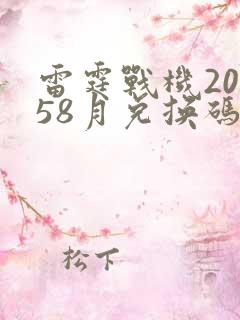 雷霆戰機20
58月兌換碼
松下